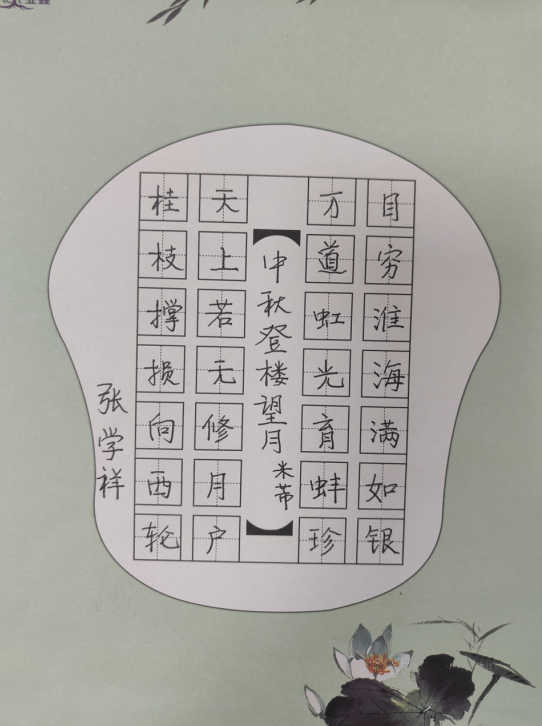 目穷淮海满如银
万道虹光育蚌珍
中秋登楼望月
米芾
天上若无修月户
桂枝撑损向西轮
张学祥